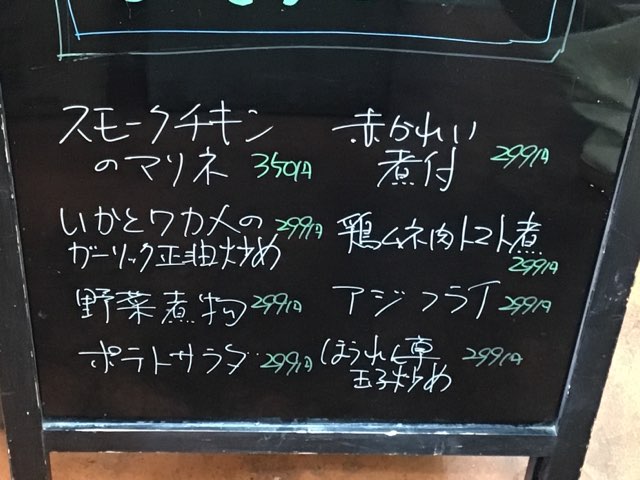 スモークチキン
のマリネ 350円
いかとワカメの 299円
ガーリック正油炒め
野菜煮物 299円
ポテトサラダ 299円
赤かれい
煮付 299円
鶏ムネ肉トマト煮
299円
アジフライ 299円
ほうれん草 299円
玉子炒め